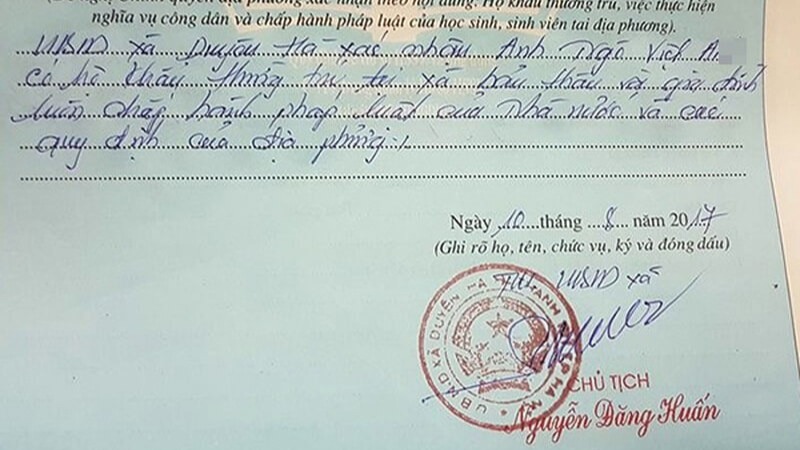 (Đề nghị Chính quyền địa phương xác nhận theo nội dung: Hộ khẩu thường trú, việc thực hiện
nghĩa vụ công dân và chấp hành pháp luật của học sinh, sinh viên tại địa phương).
UBND xã Duyên Hà xác nhận Anh Ngô Việt A
có hộ khẩu thường trú tại xã bản thân và gia đình
luôn chấp hành pháp luật của nhà nước và các
quy định của địa phương./.
Ngày 10 tháng 8 năm 2017
(Ghi rõ họ, tên, chức vụ, ký và đóng dấu)
TM UBND xã
U.B.N.D XÃ DUYÊN HÀ
CHỦ TỊCH
Nguyễn Đăng Huấn